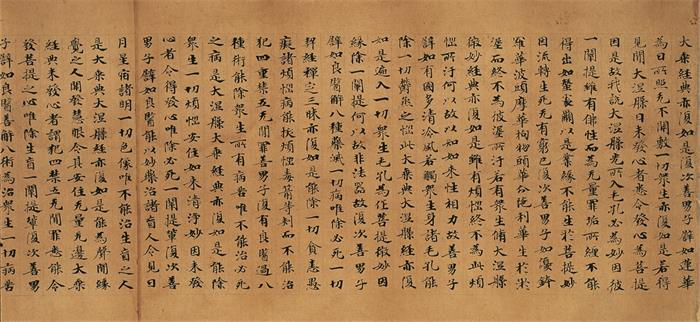 大乘經典亦復如是復次善男子譬如蓮華
為日所照无不開敷一切衆生亦復如是若得
見聞大涅槃日未發心者悉令發心為菩提
因是故我說大涅槃光所入毛孔必為妙因彼
一闡提雖有佛性而為无量罪垢所纏不能
得出如蠶處繭以是業緣不能生於菩提妙
因流轉生死无有窮已復次善男子如優鉢
羅華波頭摩華拘物頭華分陁利華生於淤
泥而終不為彼泥所汙若有衆生脩大涅槃
微妙經典亦復如是雖有煩惱終不為此煩
惱所汙何以故以知如來性相力故善男子
譬如有國多清冷風若觸衆生身諸毛孔能
除一切鬱蒸之惱此大乘典大涅槃經亦復
如是遍入一切衆生毛孔為作菩提微妙因
緣除一闡提何以故非法器故復次善男子
譬如良醫解八種藥滅一切病唯除必死一切
契經禪定三昧亦復如是能除一切貪恚愚
癡諸煩惱病能拔煩惱毒箭等刺而不能治
犯四重禁五无間罪善男子復有良醫過八
種術能除衆生所有病苦唯不能治必死
之病是大涅槃大乘經典亦復如是能除
衆生一切煩惱安住如來清淨妙因未發
心者令得發心唯除必死一闡提輩復次善
男子譬如良醫能以妙藥治諸盲人令見日
月星宿諸明一切色像唯不能治生盲之人
是大乘典大涅槃經亦復如是能為聲聞緣
覺之人開發慧眼令其安住无量无邊大乘
經典未發心者謂犯四禁五无間罪悉能令
發菩提之心唯除生盲一闡提輩復次善男
子譬如良醫善解八術為治衆生一切病苦